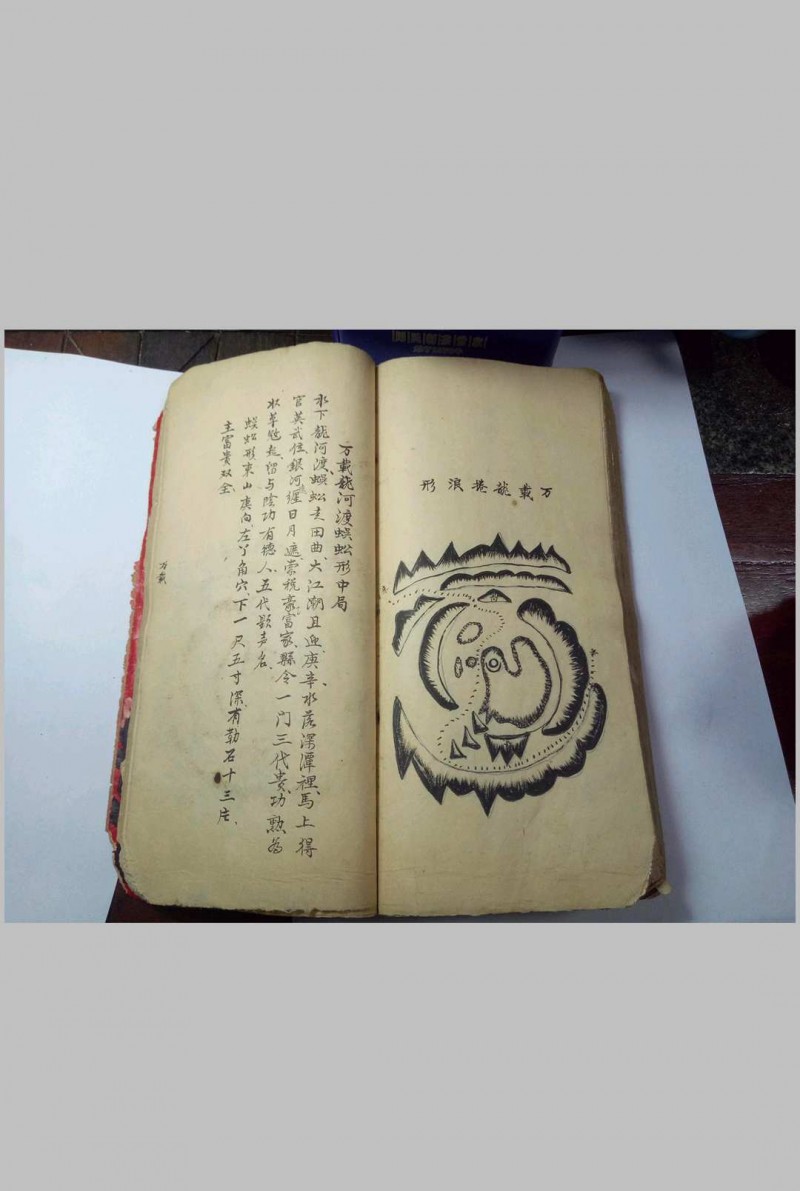 万載龍捲浪形
万載龍河渡蜈蚣形中局
水下龍河渡、蜈蚣走田曲、大江潮且迎、庚辛水落深潭裡、馬上得
官英武任、銀河纏日月、遮蒙税豪富家、縣令一门三代貴、功勲為
留与陰功有德人、五代声名、
蜈蚣形東山庚向、左丫角穴、下一尺五寸深、有勒石十三片、
主富貴双全、
万載